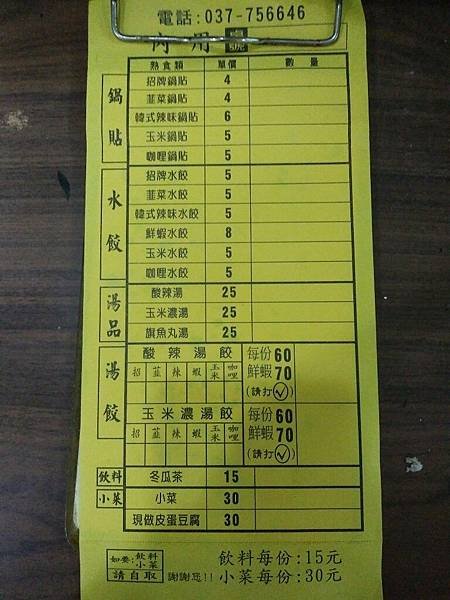 電話:037-756646
內用 號
熟食類 單價 數量
鍋貼
招牌鍋貼 4
韮菜鍋貼 4
韓式辣味鍋貼 6
玉米鍋貼 5
咖哩鍋貼 5
水餃
招牌水餃 5
韮菜水餃 5
韓式辣味水餃 5
鮮蝦水餃 8
玉米水餃 5
咖哩水餃 5
湯品
酸辣湯 25
玉米濃湯 25
旗魚丸湯 25
湯餃
酸辣湯餃 每份60
招 韮 辣 蝦 玉米 咖哩 鮮蝦70
(請打✓)
玉米濃湯餃 每份60
招 韮 辣 蝦 玉米 咖哩 鮮蝦70
(請打✓)
飲料 冬瓜茶 15
小菜 小菜 30
現做皮蛋豆腐 30
如要:飲料 小菜
請自取 謝謝您!!
飲料每份:15元
小菜每份:30元